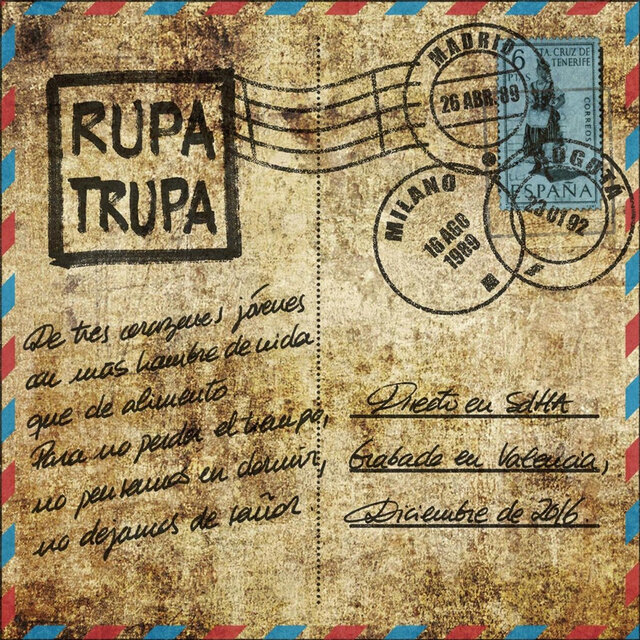 RUPA
TRUPA
MADRID
26 ABR. 89
6
PTS
STA. CRUZ DE
TENERIFE
CORREOS
ESPAÑA
BOGOTÁ
23 01 92
MILANO
16 AGO
1989
De tres corazones jóvenes
con más hambre de vida
que de alimento
Para no perder el tiempo,
no pensamos en dormir,
no dejamos de soñar
Directo en SdHA
Grabado en Valencia,
Diciembre de 2016.